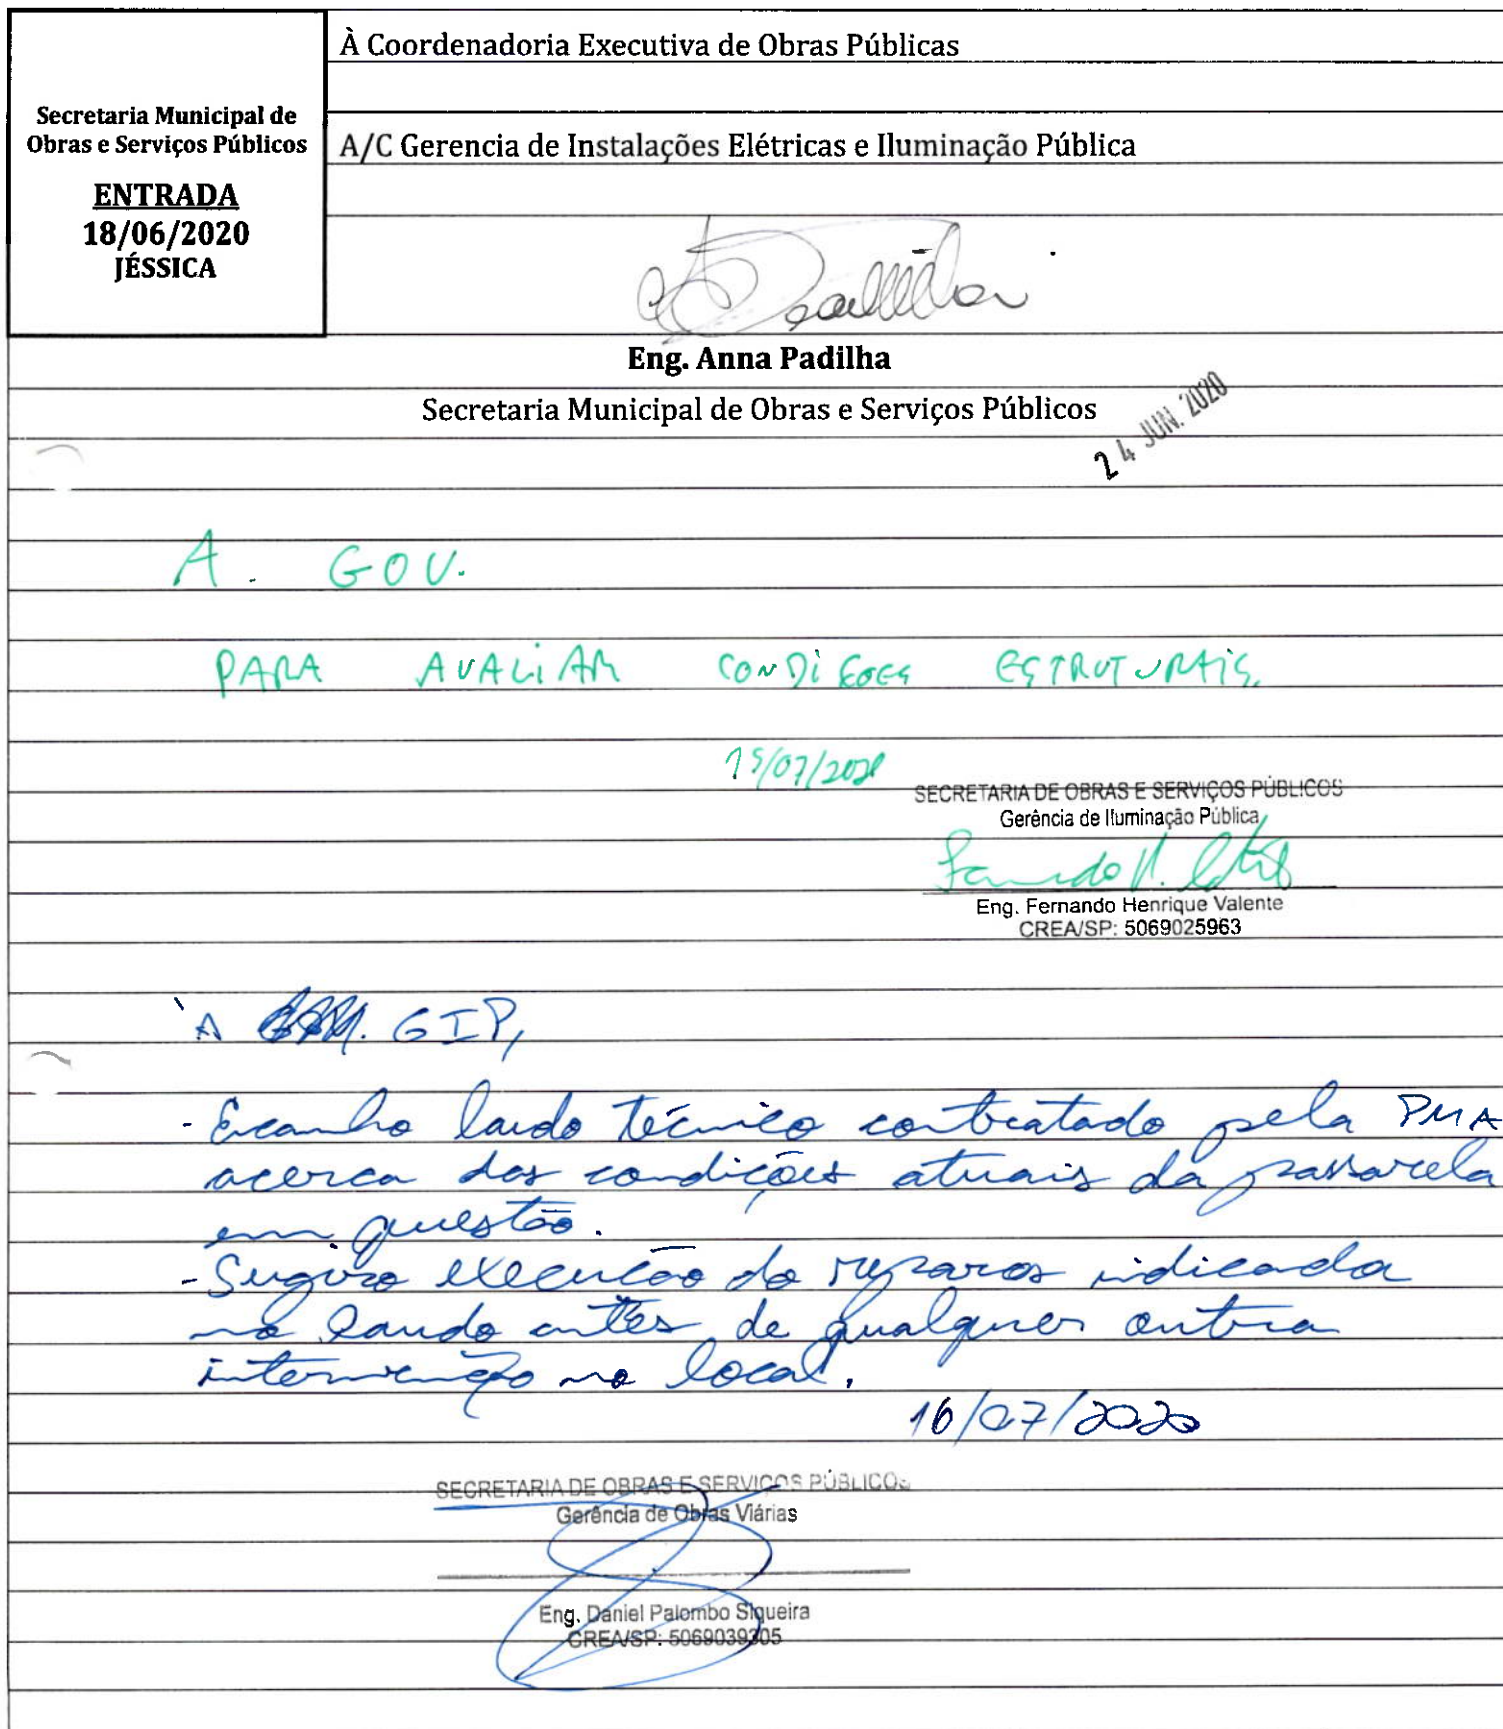 À Coordenadoria Executiva de Obras Públicas
Secretaria Municipal de
Obras e Serviços Públicos
A/C Gerencia de Instalações Elétricas e Iluminação Pública
ENTRADA
18/06/2020
JÉSSICA
Eng. Anna Padilha
Secretaria Municipal de Obras e Serviços Públicos
24 JUN. 2020
A. GOV.
PARA AVALIAR CONDIÇOES ESTRUTURAIS.
15/07/2020
SECRETARIA DE OBRAS E SERVIÇOS PÚBLICOS
Gerência de Iluminação Pública
Eng. Fernando Henrique Valente
CREA/SP: 5069025963
À GIP,
- Encaminho laudo técnico contratado pela PMA
acerca das condições atuais da passarela
em questão.
- Sugiro execução do reparos indicados
no laudo antes de qualquer outra
intervenção no local.
16/07/2020
SECRETARIA DE OBRAS E SERVIÇOS PÚBLICOS
Gerência de Obras Viárias
Eng. Daniel Palombo Siqueira
CREA/SP: 5069039305